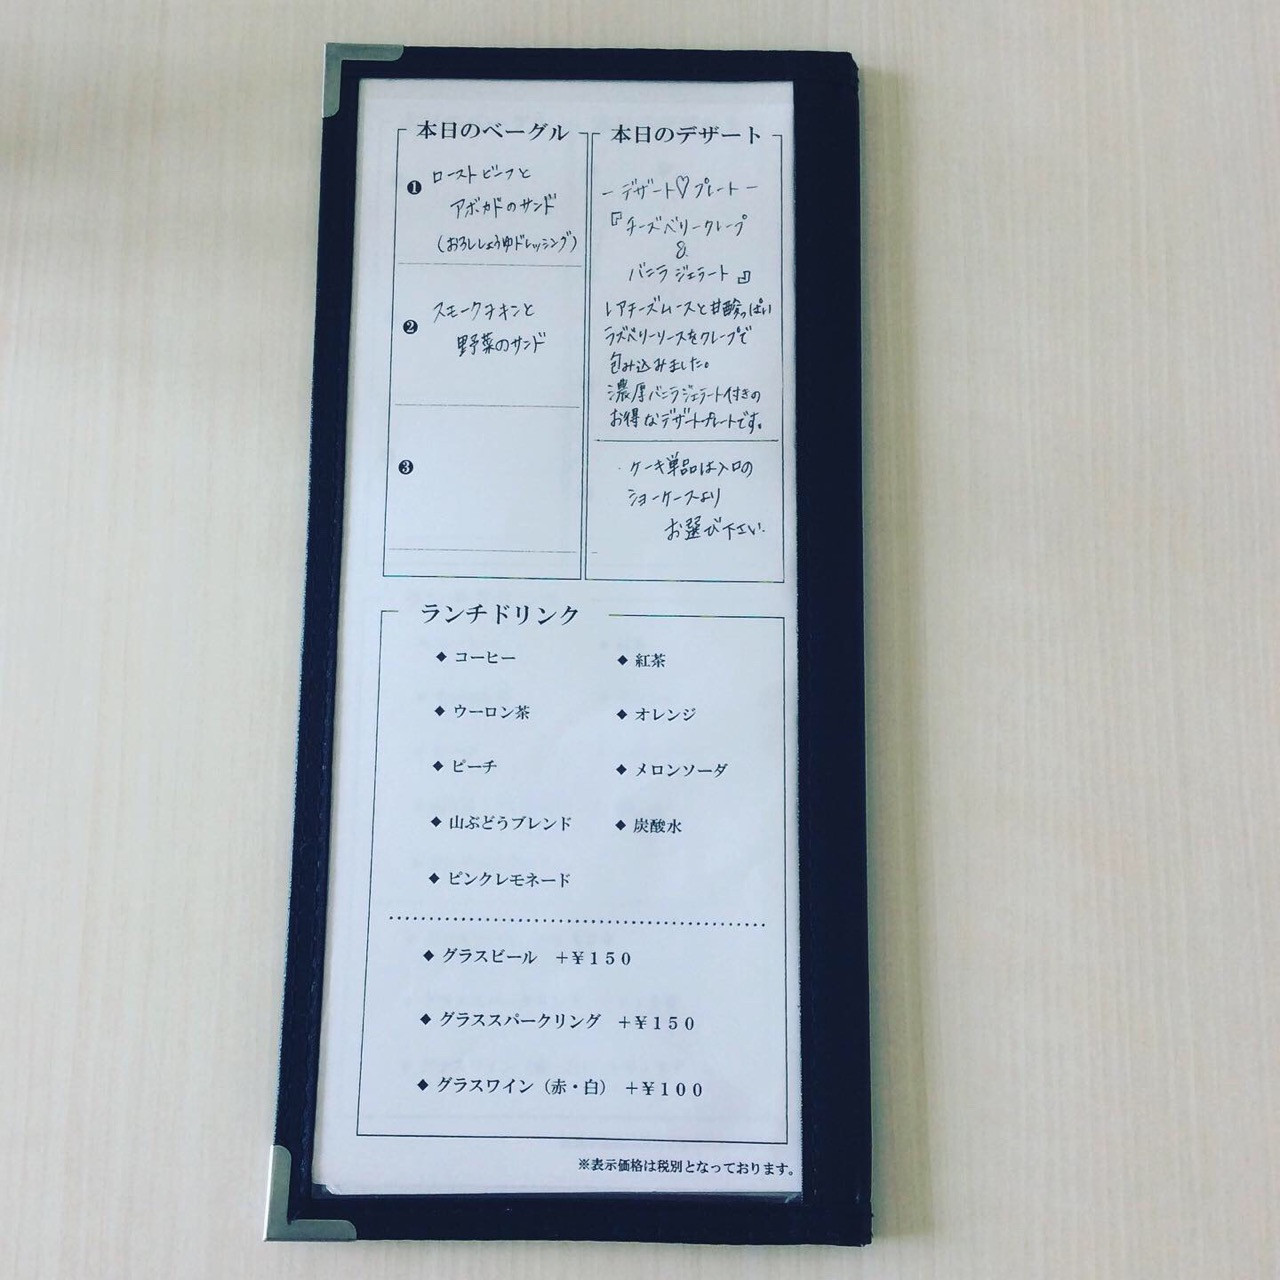 本日のベーグル
❶ ローストビーフと
アボカドのサンド
(おろししょうゆドレッシング)
❷ スモークチキンと
野菜のサンド
❸
本日のデザート
ー デザート♡プレート ー
『チーズベリークレープ
&
バニラジェラート』
レアチーズムースと甘酸っぱい
ラズベリーソースをクレープで
包み込みました。
濃厚バニラジェラート付きの
お得なデザートプレートです。
・ケーキ単品は入口の
ショーケースより
お選び下さい。
ランチドリンク
◆ コーヒー ◆ 紅茶
◆ ウーロン茶 ◆ オレンジ
◆ ピーチ ◆ メロンソーダ
◆ 山ぶどうブレンド ◆ 炭酸水
◆ ピンクレモネード
◆ グラスビール +￥150
◆ グラススパークリング +￥150
◆ グラスワイン（赤・白） +￥100
※表示価格は税別となっております。